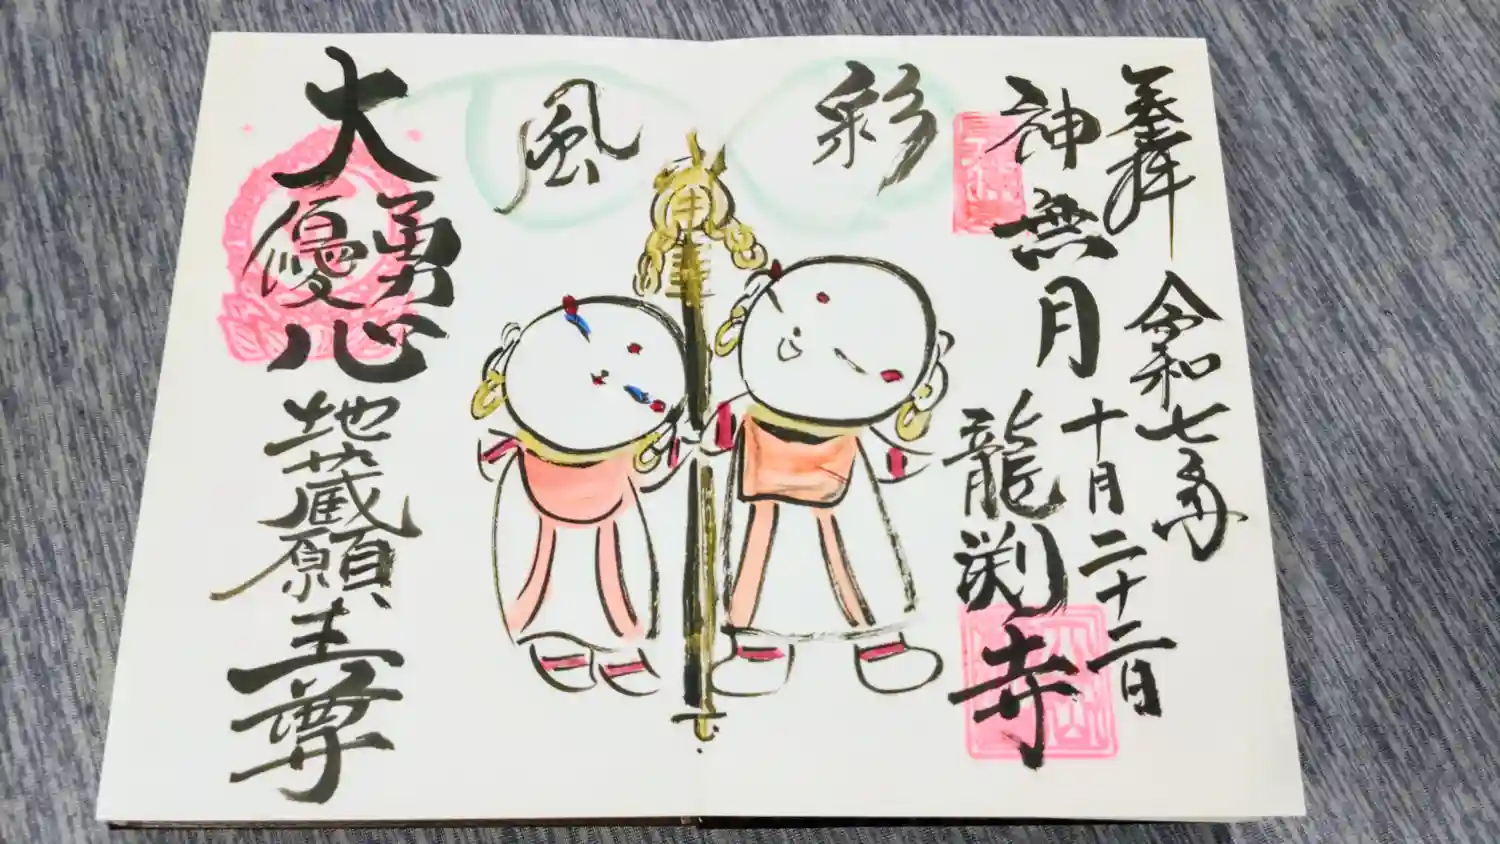 奉拝
令和七年
十月二十二日
神無月
龍渕寺
彩
風
大
勇
優
心
地蔵願主尊